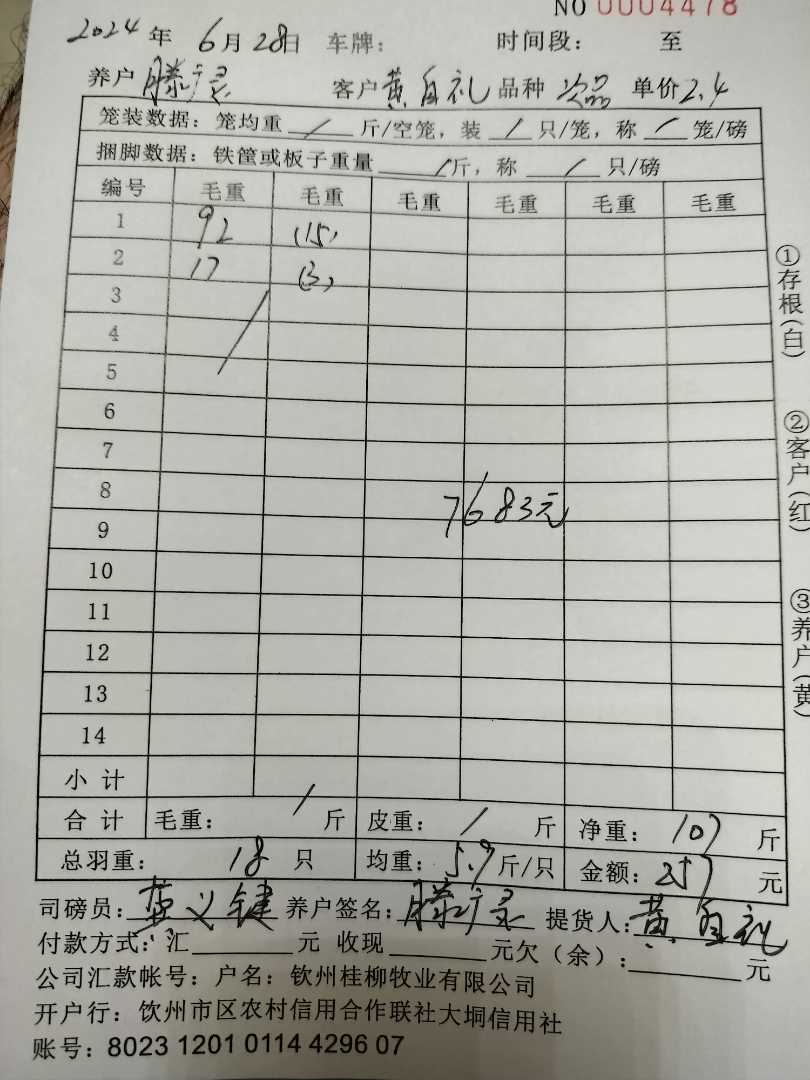 NO 0004478
2024 年 6月28日 车牌： 时间段： 至
养户 滕广灵 客户 黄自礼 品种 次品 单价 2.4
笼装数据：笼均重 / 斤/空笼，装 / 只/笼，称 / 笼/磅
捆脚数据：铁筐或板子重量 / 斤，称 / 只/磅
编号 毛重 毛重 毛重 毛重 毛重 毛重
1 92 (15)
2 17 (3)
3
4
5
6
7
8
7683元
9
10
11
12
13
14
小计
合计 毛重： / 斤 皮重： / 斤 净重： 107 斤
总羽重： 18 只 均重： 5.9 斤/只 金额： 257 元
司磅员： 义键 养户签名： 滕广灵 提货人： 黄自礼
付款方式：汇 元 收现 元欠（余）： 元
公司汇款帐号：户名：钦州桂柳牧业有限公司
开户行：饮州市区农村信用合作联社大垌信用社
账号：8023 1201 0114 4296 07
①存根(白)
②客户(红)
③养户(黄)